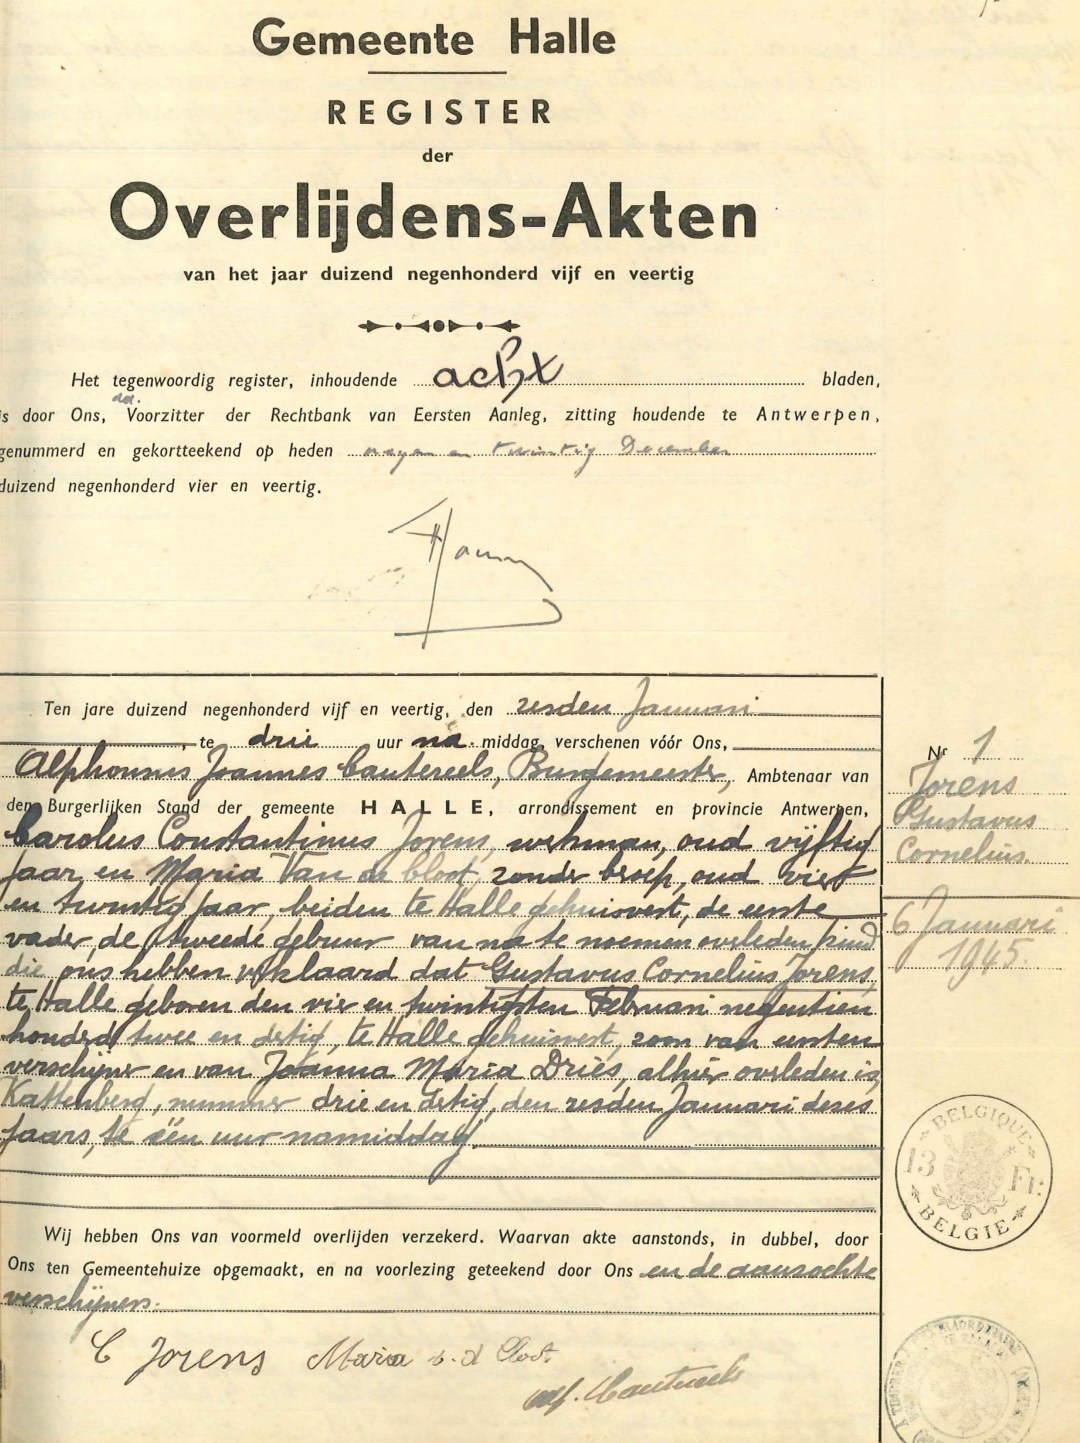 Gemeente Halle
REGISTER
der
Overlijdens-Akten
van het jaar duizend negenhonderd vijf en veertig
Het tegenwoordig register, inhoudende acht bladen,
is door Ons, dd. Voorzitter der Rechtbank van Eersten Aanleg, zitting houdende te Antwerpen,
genummerd en gekortteekend op heden negen en twintig December
duizend negenhonderd vier en veertig.
Ten jare duizend negenhonderd vijf en veertig, den zesden Januari
, te drie uur na middag, verschenen vóór Ons,
Alphonsus Joannes Cautereels, Burgemeester, Ambtenaar van
den Burgerlijken Stand der gemeente HALLE, arrondissement en provincie Antwerpen,
Carolus Constantinus Jorens, werkman, oud vijftig
jaar, en Maria Van de Cloot, zonder beroep, oud vier
en twintig jaar, beiden te Halle gehuisvest, de eerste
vader, de tweede gebuur van na te noemen overleden kind
die ons hebben verklaard dat Gustavus Cornelius Jorens,
te Halle geboren den vier en twintigsten Februari negentien
honderd twee en dertig, te Halle gehuisvest, zoon van eersten
verschijner en van Joanna Maria Dries, alhier overleden is,
Kattenberg, nummer drie en dertig, den zesden Januari dezes
jaars, te één uur namiddag.
Wij hebben Ons van voormeld overlijden verzekerd. Waarvan akte aanstonds, in dubbel, door
Ons ten Gemeentehuize opgemaakt, en na voorlezing geteekend door Ons en de aanzochte
verschijners.
C Jorens Maria v. d Cloot.
Alf. Cautereels
Nr 1
Jorens
Gustavus
Cornelius.
6 Januari
1945.
BELGIQUE
13 Fr.
BELGIE